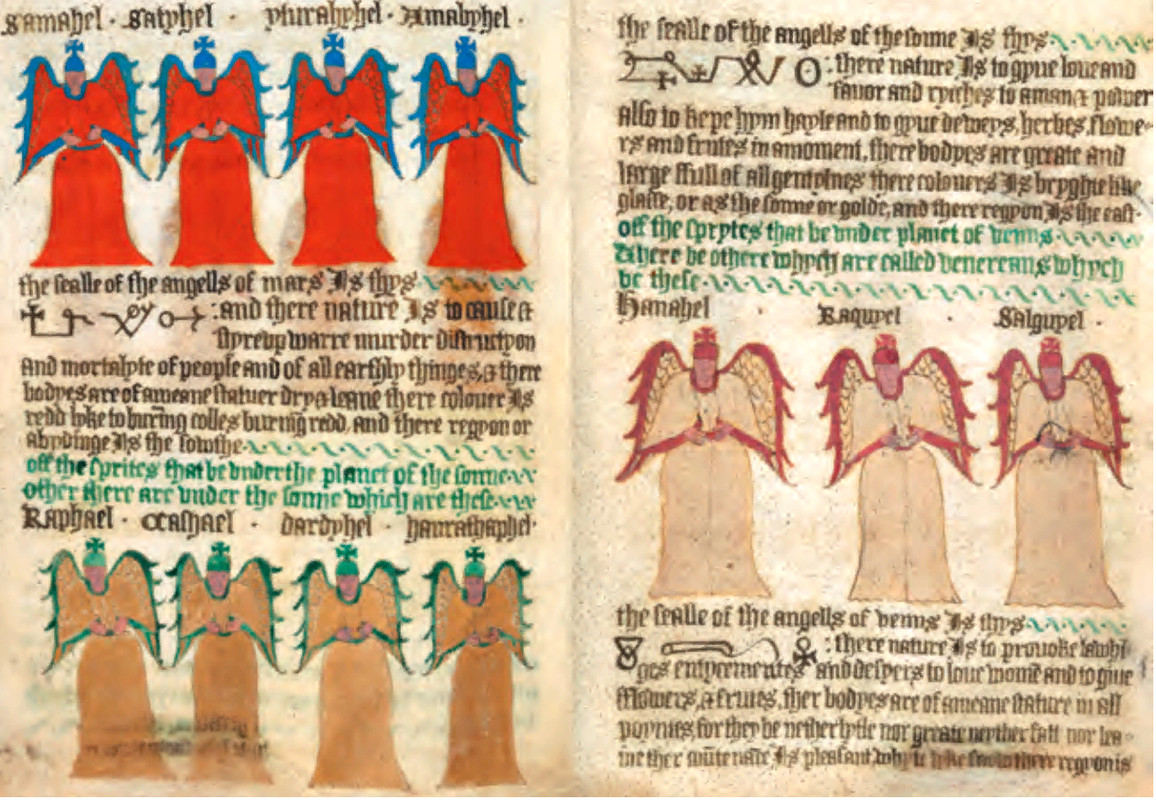 Samahel · Satyhel · yturahyhel · Amabyhel ·
the sealle of the angells of mars Is thys
: and there nature Is to cause &
styreup warre murder distructyon
and mortalyte of people and of all earthly thinges, & there
bodyes are of ameane statuer dry & leane there colouer Is
redd lyke to burnīg colles burnīg redd, and there regyon or
abydinge Is the sowthe
off the sprites that be vnder the planet of the sonne
other there are vnder the sonne which are these
Raphael · Cashael · dardyhel · haurathaphel·
the sealle of the angells of the sonne Is thys
: there nature Is to gyue loue and
fauor and ryches to aman & power
Also to kepe hym hayle and to gyue deweys, herbes, flowe-
rs and frutes in amoment, there bodyes are greate and
large ffull of all gentylnes there colouers Is bryghte like
glasse, or as the sonne or golde, and there regyon Is the east·
off the sprytes that be vnder planet of venus
there be othere whych are called venereans whych
be these
Hanahel · Raquyel · Salguyel ·
the sealle of the angells of venus Is thys
: there nature Is to prouoke
and desyers to loue womē and to giue
fflowers, & frutes, ther bodyes are of ameane stature in all
poyntes, for they be nether lytle nor greate neyther fatt nor lea-
ne ther Is pleasant, whyte lyke snow there regyon is